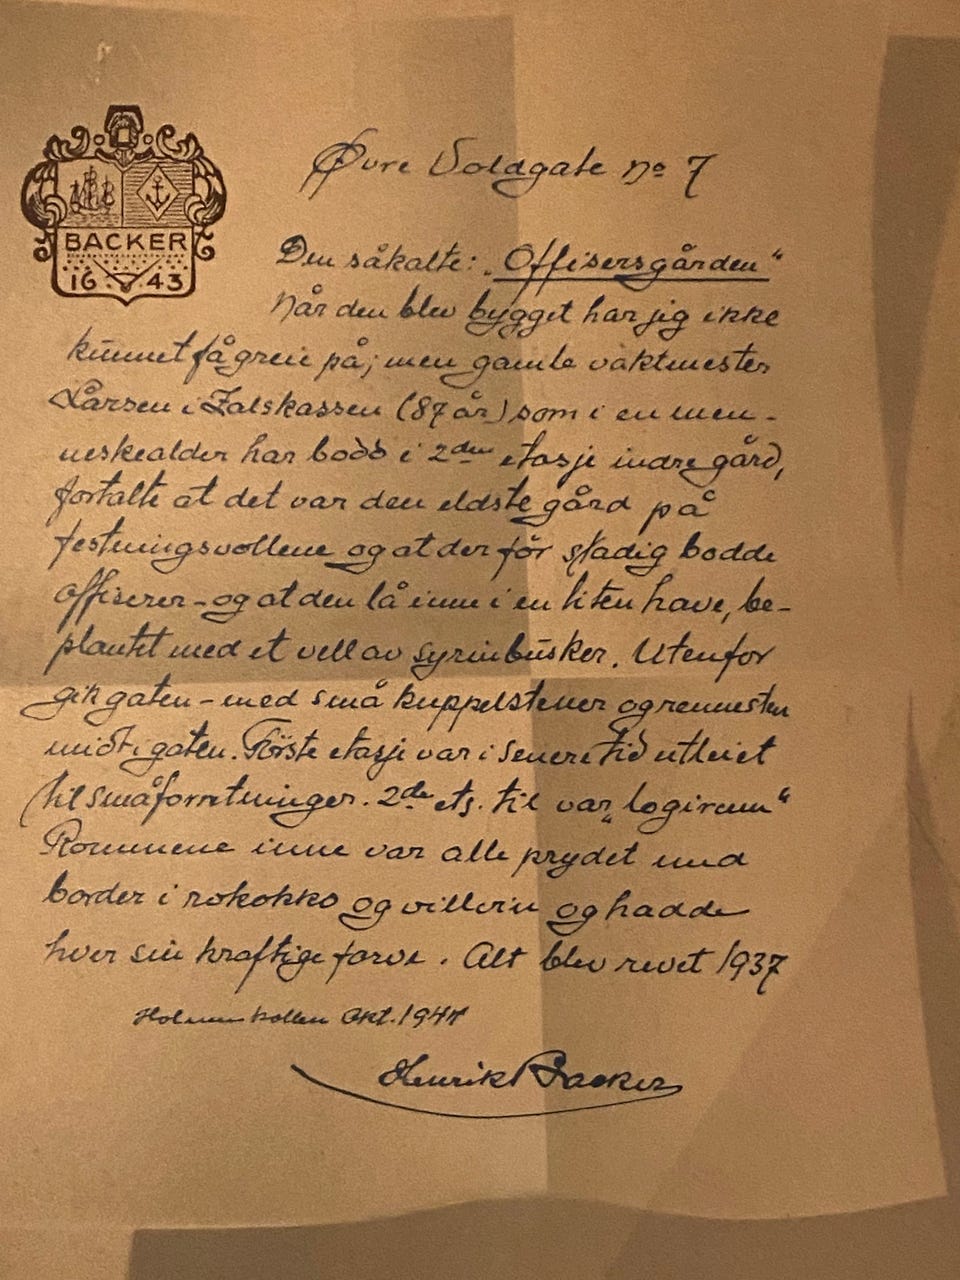 Øvre Voldgate No 7
BACKER
16 43
Den såkalte: „Offisersgården“
Når den blev bygget har jeg ikke
kunnet få greie på; men gamle vaktmester
Larsen i Falskassen (87 år) som i en men-
neskealder har bodd i 2den etasje indre gård,
fortalte at det var den eldste gård på
festningsvollene og at der før stadig bodde
offiserer – og at den lå inne i en liten have, be-
plantet med et vell av syrinbusker. Utenfor
gik gaten – med små kuppelstener og rennesten
midt i gaten. Første etasje var i senere tid utleiet
til småforretninger. 2de etg. til var „logirum“
Rommene inne var alle prydet med
border i rokokko og villvin og hadde
hver sin kraftige farve. Alt blev revet 1937
Holmenkollen Okt. 1947
Henrik Backer